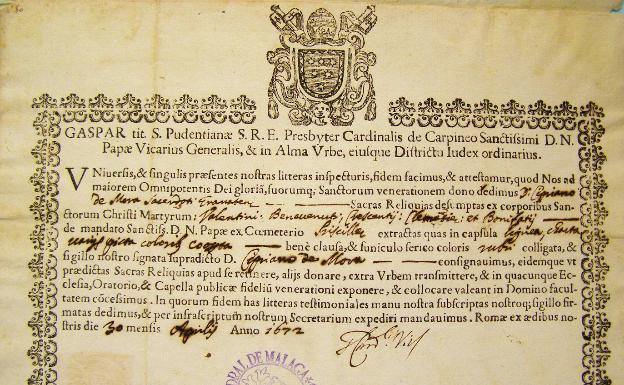 GASPAR tit. S. Pudentianæ S. R. E. Presbyter Cardinalis de Carpineo Sanctissimi D. N.
Papæ Vicarius Generalis, & in Alma Vrbe, eiusque Districtu Iudex ordinarius.
VNiuersis, & singulis præsentes nostras litteras inspecturis, fidem facimus, & attestamur, quod Nos ad
maiorem Omnipotentis Dei gloriā, suorumq; Sanctorum venerationem dono dedimus D. Cipriano
de Mora Sacerdoti Sacras Reliquias desumptas ex corporibus San-
ctorum Christi Martyrum: Valentini: Benevenuti; Crescentij: Clementis: et Bonifatij
de mandato Sanctiss. D. N. Papæ ex Cœmeterio Priscillæ extractas quas in capsula lignea,
picta coloris benè clausa, & funiculo serico coloris rubri colligata, &
sigillo nostro signata supradicto D. Cipriano de Mora consignauimus, eidemque vt
prædictas Sacras Reliquias apud se retinere, alijs donare, extra Vrbem transmittere, & in quacunque Ec-
clesia, Oratorio, & Capella publicæ fideliū venerationi exponere, & collocare valeant in Domino facul-
tatem cōcessimus. In quorum fidem has litteras testimoniales manu nostra subscriptas nostroq; sigillo fir-
matas dedimus, & per infrascriptum nostrum Secretarium expediri mandauimus. Romæ ex ædibus no-
stris die 30 mensis Aprilis Anno 1672
DRAL DE MALAGA